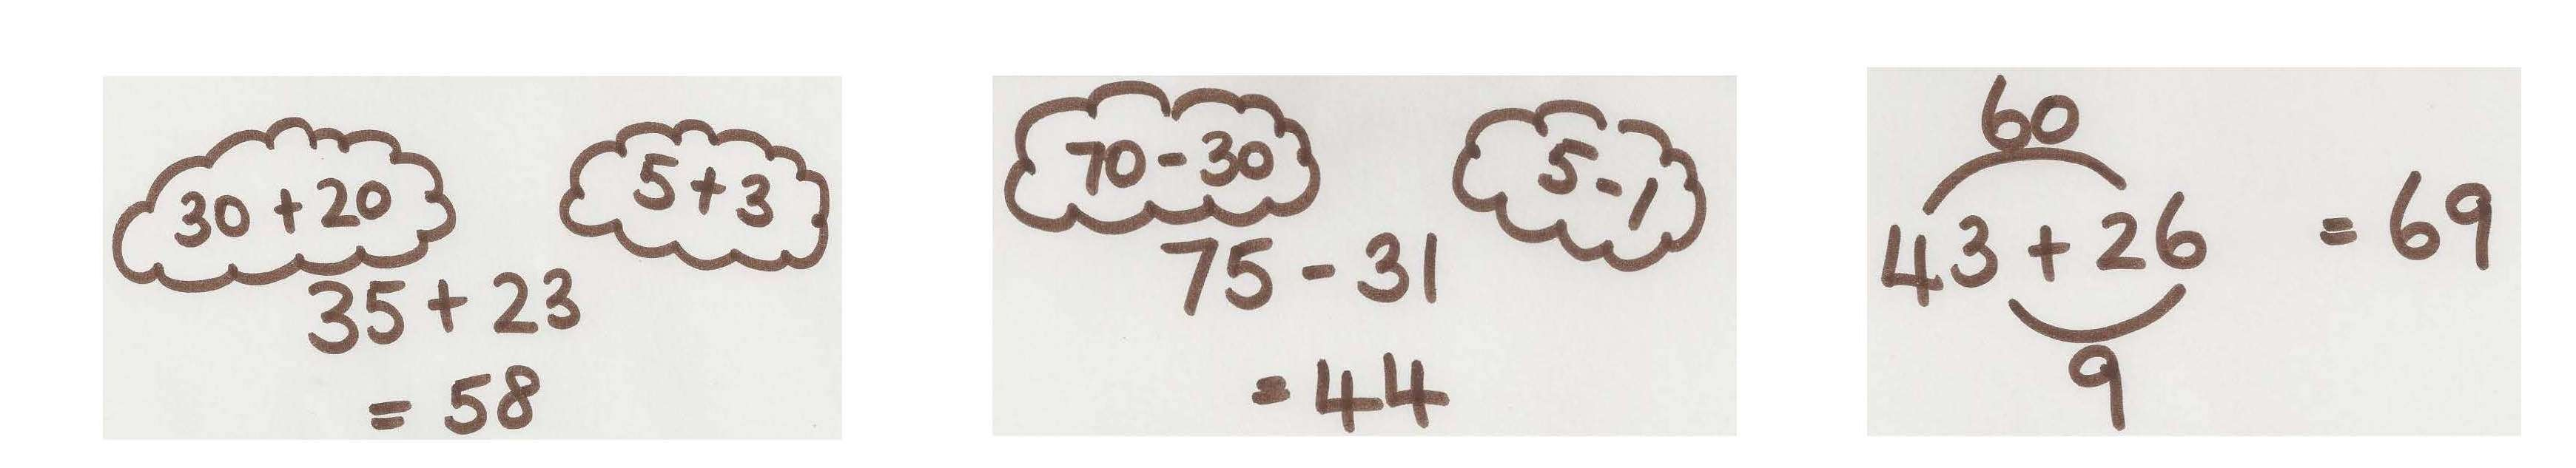 30 + 20
5 + 3
35 + 23
= 58
70 - 30
5 - 1
75 - 31
= 44
60
43 + 26 = 69
9